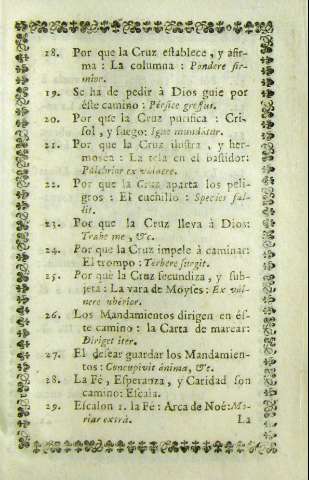 18. Por que la Cruz establece, y afir-
ma : La columna : Pondere fir-
mior.
19. Se ha de pedir à Dios guie por
éste camino : Pérfice gressus.
20. Por que la Cruz purifica : Cri-
sol, y fuego: Igne mundatur.
21. Por que la Cruz ilustra, y her-
mosea : La tela en el bastidor:
Pulchrior ex vulnere.
22. Por que la Cruz aparta los peli-
gros : El cuchillo : Species fal-
lit.
23. Por que la Cruz lleva à Dios:
Trahe me, &c.
24. Por que la Cruz impele à caminar:
El trompo : Verbere surgit.
25. Por que la Cruz fecundiza, y sub-
jeta : La vara de Moyses : Ex vul-
nere ubérior.
26. Los Mandamientos dirigen en és-
te camino : la Carta de marear:
Diriget iter.
27. El desear guardar los Mandamien-
tos : Concupivit ánima, &c.
28. La Fé, Esperanza, y Caridad son
camino: Escala.
29. Escalon 1. la Fé : Arca de Noé: Mo-
riar extrá.
La